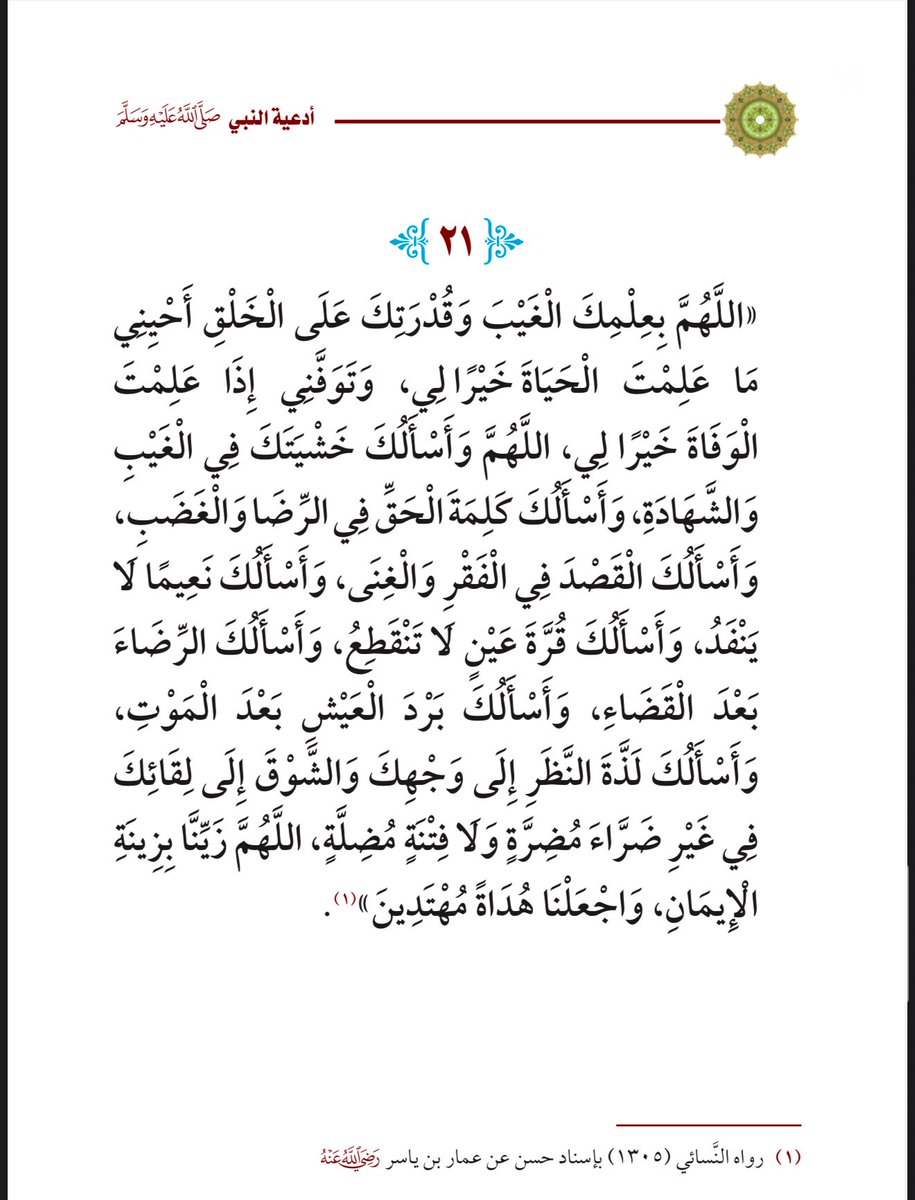 أدعية النبي صَلَّى اللَّهُ عَلَيْهِ وَسَلَّمَ
٢١
«اللَّهُمَّ بِعِلْمِكَ الْغَيْبَ وَقُدْرَتِكَ عَلَى الْخَلْقِ أَحْيِنِي
مَا عَلِمْتَ الْحَيَاةَ خَيْرًا لِي، وَتَوَفَّنِي إِذَا عَلِمْتَ
الْوَفَاةَ خَيْرًا لِي، اللَّهُمَّ وَأَسْأَلُكَ خَشْيَتَكَ فِي الْغَيْبِ
وَالشَّهَادَةِ، وَأَسْأَلُكَ كَلِمَةَ الْحَقِّ فِي الرِّضَا وَالْغَضَبِ،
وَأَسْأَلُكَ الْقَصْدَ فِي الْفَقْرِ وَالْغِنَى، وَأَسْأَلُكَ نَعِيمًا لَا
يَنْفَدُ، وَأَسْأَلُكَ قُرَّةَ عَيْنٍ لَا تَنْقَطِعُ، وَأَسْأَلُكَ الرِّضَاءَ
بَعْدَ الْقَضَاءِ، وَأَسْأَلُكَ بَرْدَ الْعَيْشِ بَعْدَ الْمَوْتِ،
وَأَسْأَلُكَ لَذَّةَ النَّظَرِ إِلَى وَجْهِكَ وَالشَّوْقَ إِلَى لِقَائِكَ
فِي غَيْرِ ضَرَّاءَ مُضِرَّةٍ وَلَا فِتْنَةٍ مُضِلَّةٍ، اللَّهُمَّ زَيِّنَّا بِزِينَةِ
الْإِيمَانِ، وَاجْعَلْنَا هُدَاةً مُهْتَدِينَ»(١).
(١) رواه النَّسائي (١٣٠٥) بإسناد حسن عن عمار بن ياسر رَضِيَ اللَّهُ عَنْهُ